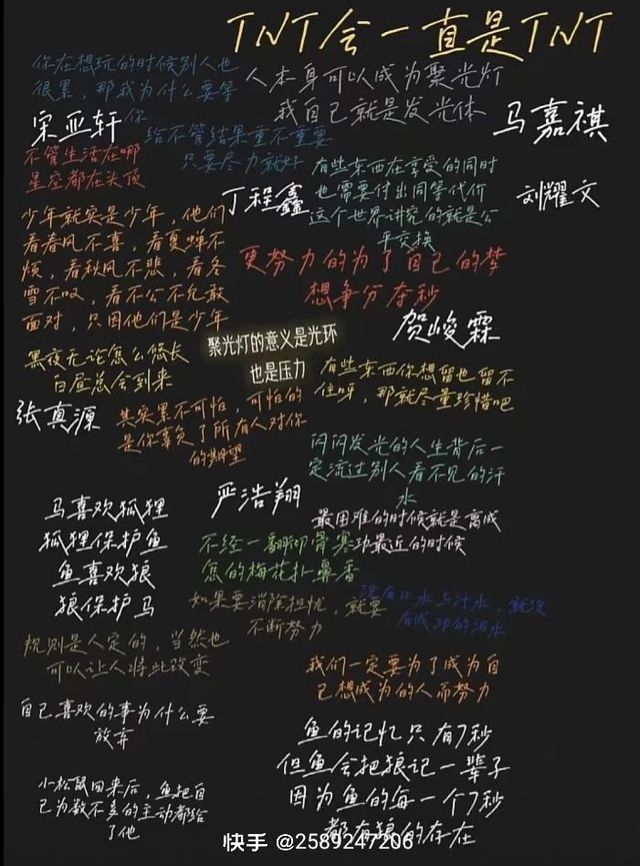 TNT会一直是TNT
你在想玩的时候别人也
很累，那我为什么要等
你
人本身可以成为聚光灯
我自己就是发光体
宋亚轩
马嘉祺
给不管结果重不重要
只要尽力就好
不管生活在哪
星空都在头顶
丁程鑫
有些东西在享受的同时
也需要付出同等代价
这个世界讲究的就是公
平交换
刘耀文
少年就实是少年，他们
看春风不喜，看夏蝉不
烦，看秋风不悲，看冬
雪不叹，看不公不允敢
面对，只因他们是少年
更努力的为了自己的梦
想争分夺秒
贺峻霖
聚光灯的意义是光环
也是压力
黑夜无论怎么悠长
白昼总会到来
有些东西你想留也留不
住呀，那就尽量珍惜吧
张真源
其实累不可怕，可怕的
是你辜负了所有人对你
的期望
闪闪发光的人生背后一
定流过别人看不见的汗
水
严浩翔
马喜欢狐狸
狐狸保护鱼
鱼喜欢狼
狼保护马
最困难的时候就是离成
功最近的时候
不经一翻彻骨寒
怎的梅花扑鼻香
如果要消除担忧，就要
不断努力
没有口水与汗水，就没
有成功的泪水
规则是人定的，当然也
可以让人将此改变
我们一定要为了成为自
己想成为的人而努力
自己喜欢的事为什么要
放弃
鱼的记忆只有7秒
但鱼会把狼记一辈子
因为鱼的每一个7秒
都有狼的存在
小松鼠回来后，鱼把自
己为数不多的主动都给
了他
快手 @2589247206